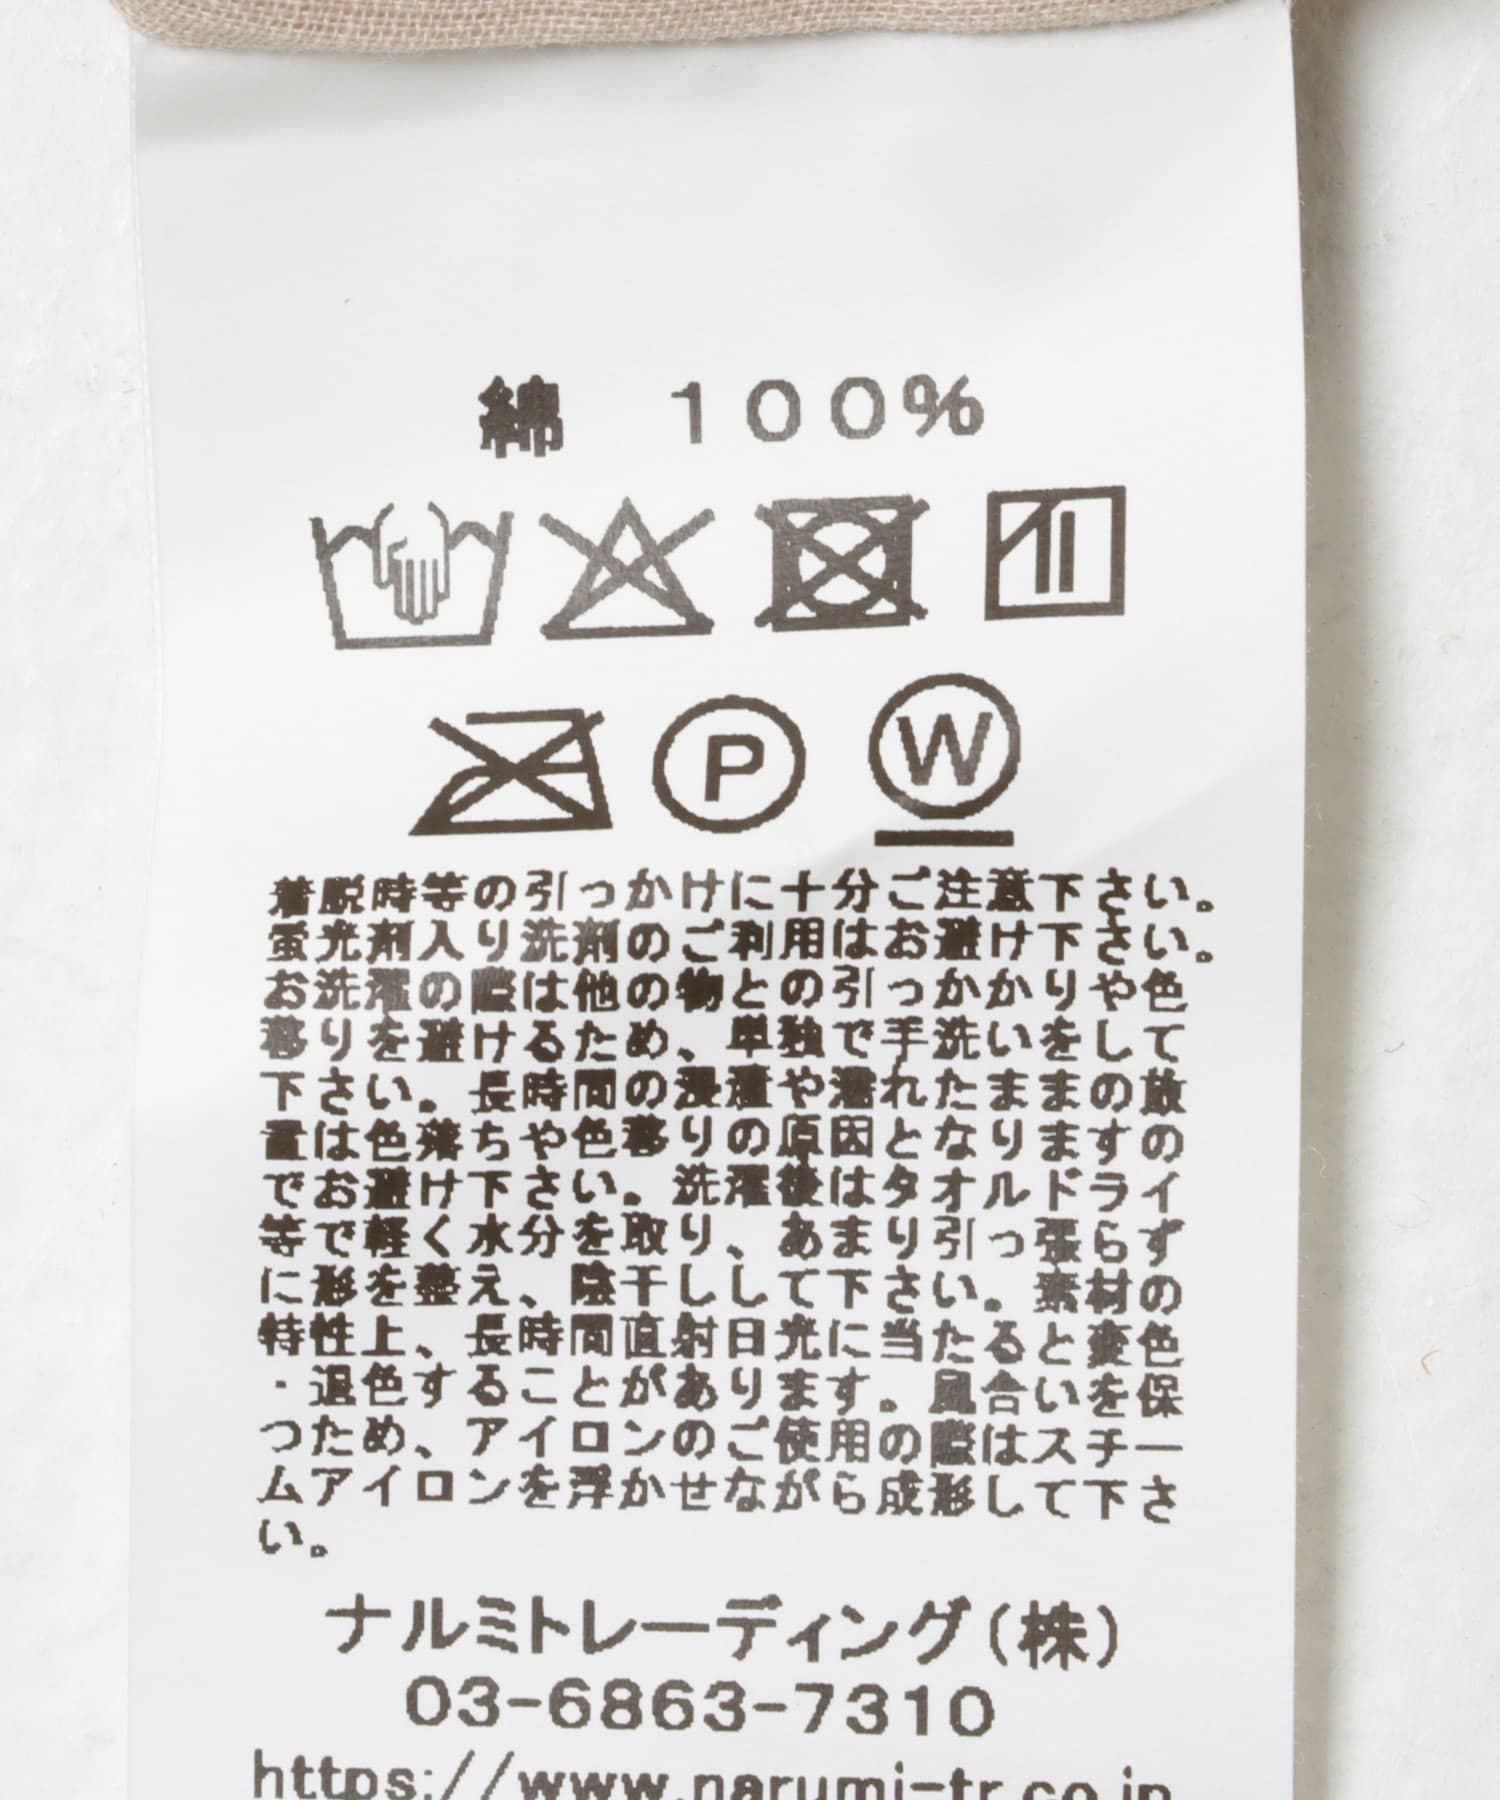 綿 100%
P W
着脱時等の引っかけに十分ご注意下さい。
蛍光剤入り洗剤のご利用はお避け下さい。
お洗濯の際は他の物との引っかかりや色
移りを避けるため、単独で手洗いをして
下さい。長時間の浸漬や濡れたままの放
置は色落ちや色移りの原因となりますの
でお避け下さい。洗濯後はタオルドライ
等で軽く水分を取り、あまり引っ張らず
に形を整え、陰干しして下さい。素材の
特性上、長時間直射日光に当たると変色
・退色することがあります。風合いを保
つため、アイロンのご使用の際はスチー
ムアイロンを浮かせながら成形して下さ
い。
ナルミトレーディング(株)
03-6863-7310
https://www.narumi-tr.co.jp